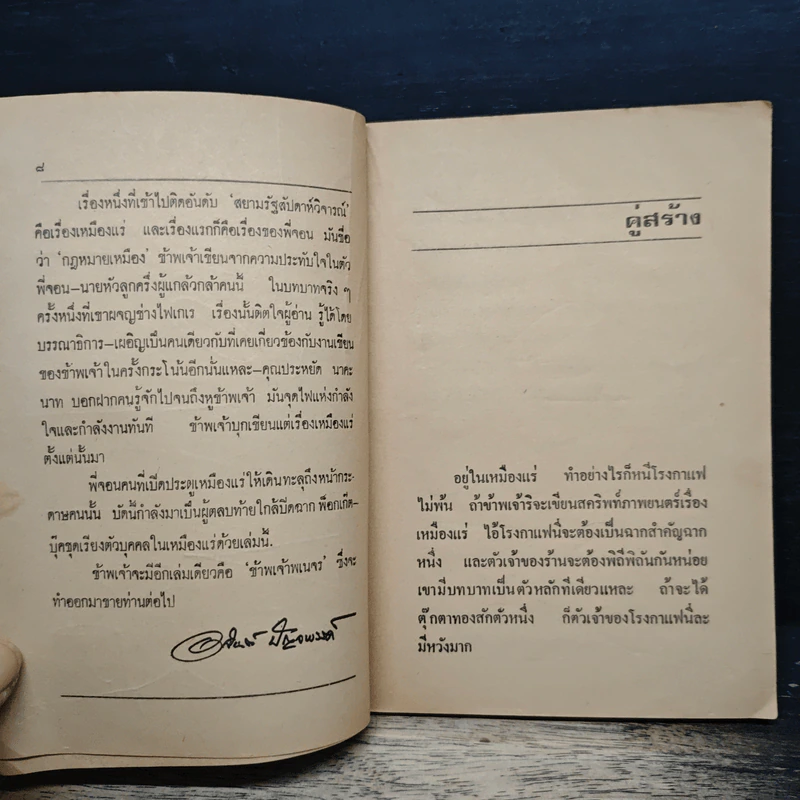 ๘
เรื่องหนึ่งที่เข้าไปติดอันดับ 'สยามรัฐสัปดาห์วิจารณ์'
คือเรื่องเหมืองแร่ และเรื่องแรกก็คือเรื่องของพี่จอน มันชื่อ
ว่า 'กฎหมายเหมือง' ข้าพเจ้าเขียนจากความประทับใจในตัว
พี่จอน–นายหัวลูกครึ่งผู้แกล้วกล้าคนนี้ ในบทบาทจริง ๆ
ครั้งหนึ่งที่เขาผจญช่างไฟเกเร เรื่องนั้นติดใจผู้อ่าน รู้ได้โดย
บรรณาธิการ–เผอิญเป็นคนเดียวกับที่เคยเกี่ยวข้องกับงานเขียน
ของข้าพเจ้าในครั้งกระโน้นอีกนั่นแหละ–คุณประหยัด นาคะ
นาท บอกฝากคนรู้จักไปจนถึงหูข้าพเจ้า มันจุดไฟแห่งกำลัง
ใจและกำลังงานทันที ข้าพเจ้าบุกเขียนแต่เรื่องเหมืองแร่
ตั้งแต่นั้นมา
พี่จอนคนที่เบิดประตูเหมืองแร่ให้เดินทะลุถึงหน้ากระ-
ดาษคนนั้น บัดนี้กำลังมาเป็นผู้ตลบท้ายใกล้ปิดฉาก พ็อกเก๊ต-
บุ๊คชุดเรียงตัวบุคคลในเหมืองแร่ด้วยเล่มนี้.
ข้าพเจ้าจะมีอีกเล่มเดียวคือ 'ข้าพเจ้าพเนจร' ซึ่งจะ
ทำออกมาขายท่านต่อไป
อาจินต์ ปัญจพรรค์
คู่สร้าง
อยู่ในเหมืองแร่ ทำอย่างไรก็หนีโรงกาแฟ
ไม่พ้น ถ้าข้าพเจ้าริจะเขียนสคริพท์ภาพยนตร์เรื่อง
เหมืองแร่ ไอ้โรงกาแฟนี่จะต้องเป็นฉากสำคัญฉาก
หนึ่ง และตัวเจ้าของร้านจะต้องพิถีพิถันกันหน่อย
เขามีบทบาทเป็นตัวหลักทีเดียวแหละ ถ้าจะได้
ตุ๊กตาทองสักตัวหนึ่ง ก็ตัวเจ้าของโรงกาแฟนี่ละ
มีหวังมาก